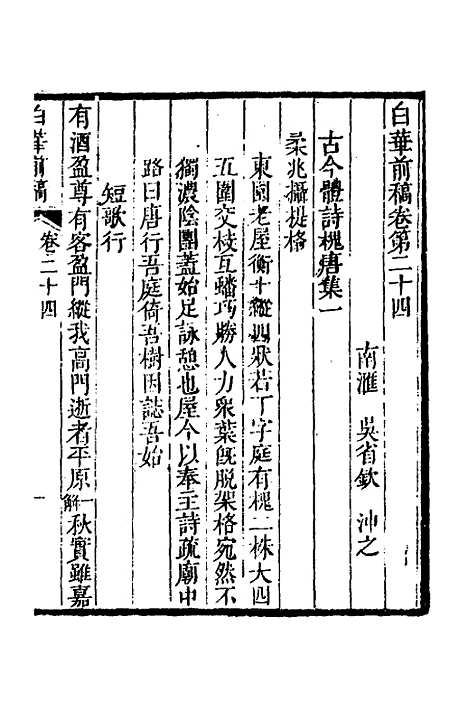 白華前稿卷第二十四
南滙 吳省欽 沖之
古今體詩槐唐集一
柔兆攝提格
東園老屋衡十縱四狀若丁字庭有槐二株大四
五圍交枝互蟠巧勝人力衆葉旣脫架格宛然不
獨濃陰團蓋始足詠憩也屋今以奉主詩疏廟中
路曰唐行吾庭倚吾樹因誌吾始
短歌行
有酒盈尊有客盈門縱我高門逝者平原一解秋實雖嘉
白華前稿 卷二十四 一